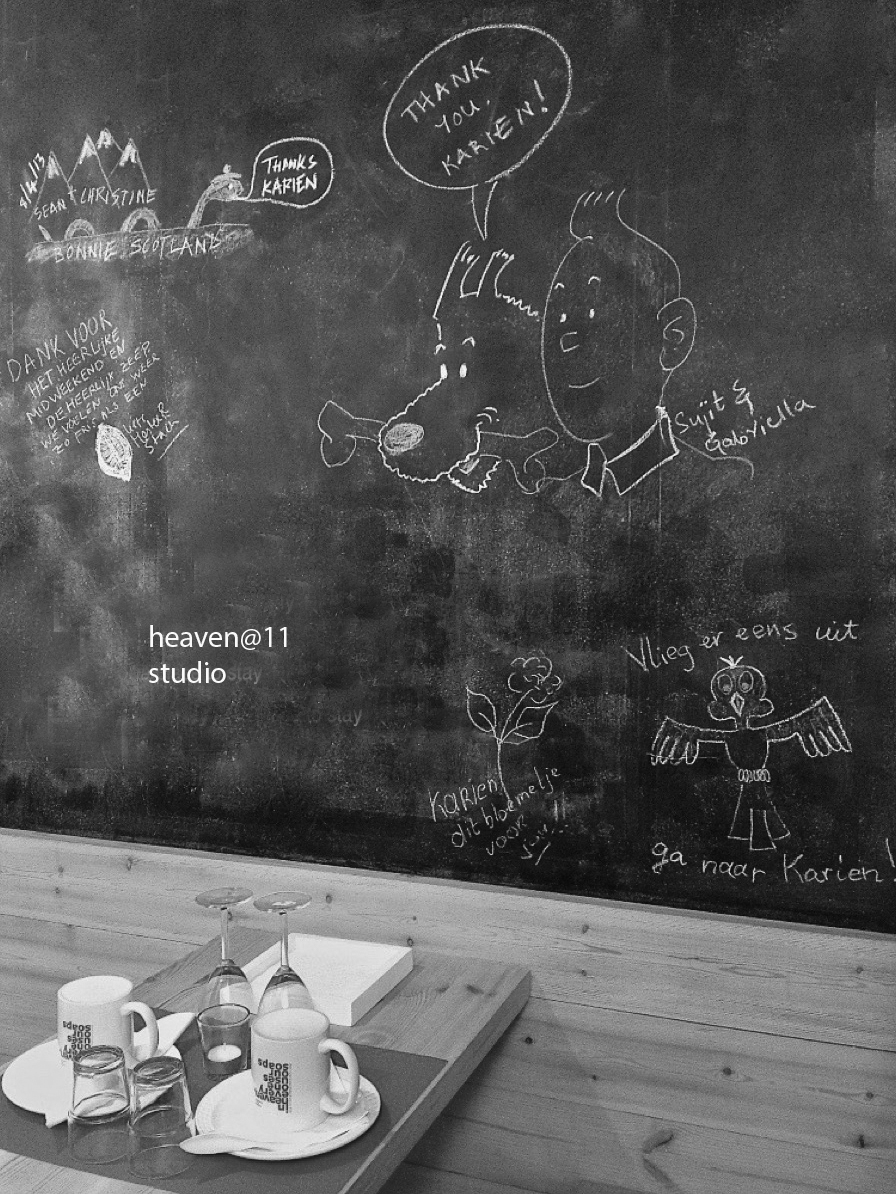 THANK
YOU,
KARIEN!
THANKS
KARIEN
4/4/13
SEAN + CHRISTINE
BONNIE SCOTLAND
DANK VOOR
HET HEERLIJKE
MIDWEEKEND EN
DE HEERLIJK ZEEP
WE VOELEN ONS WEER
ZO FRIS ALS EEN
Sujit &
Gabriella
heaven@11
studio
stay
stay
Vlieg er eens uit
Karien,
dit bloemetje
voor
jou!!
ga naar Karien!
in
heaven
every
one
uses
our
soaps